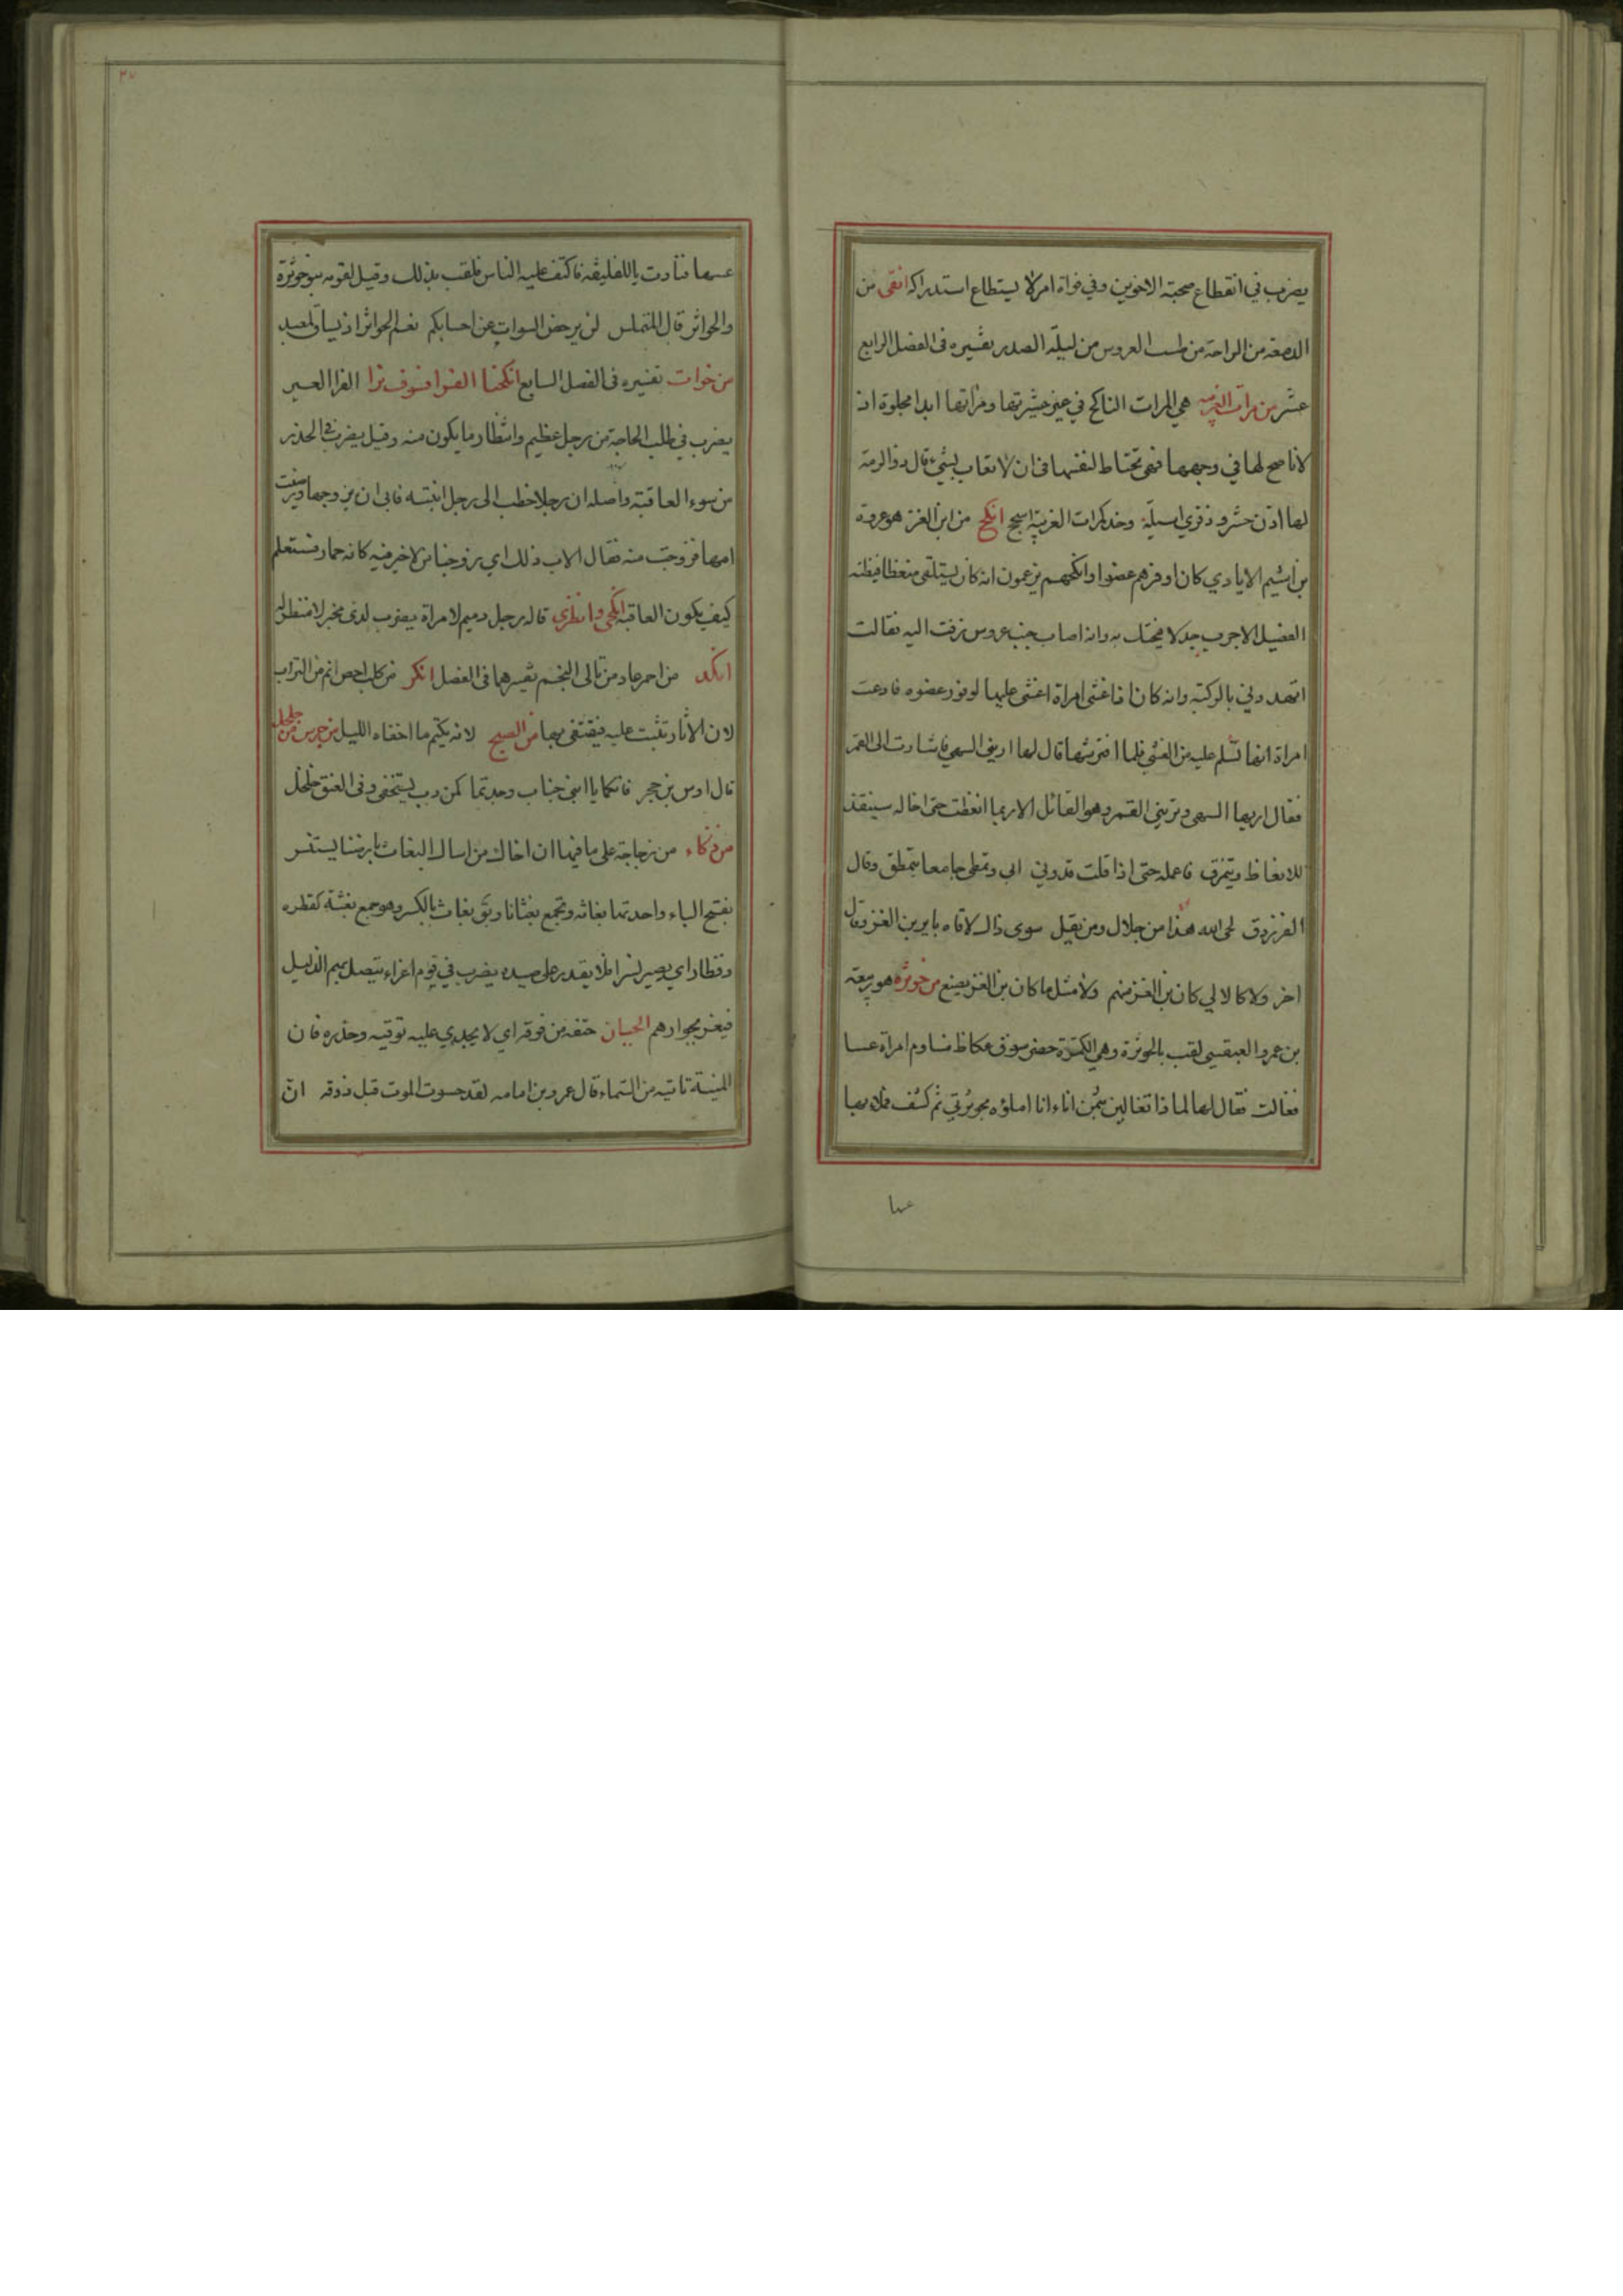 يضرب في انقطاع صحبة الاخوين وفي فواة امر لا يستطاع استدراكه انقى من
الدمعة من الراحة من طست العروس من ليلة الصدر تفسيره في الفصل الرابع
عشر من مرآت الغريبة هي المرات الناكح في غير عشيرتها ومرآتها ابدا مجلوة اذ
لا ناصح لها في وجهها فهي تحتاط لنفسها في ان لا تعاب بشيء قال ذو الرمة
لها اذن حشر وذفري اسيلة وخد كمرات الغريبة اسجح انكح من ابن الغز هو عروة
بن اشيم الايادي كان اوفرهم عضوا وانكحهم يزعمون انه كان يستلقى منعظا فيظنه
الفصيل الاجرب جدلا فيحتك به وانه اصاب جنب عروس زفت اليه فقالت
اتهددني بالركبة وانه كان اذا غشى امراة اغشى عليها لوفور عضوه فادعت
امراة انها تسلم عليه من الغشي فلما افترشها قال لها اريني السهى فاشارت الى القمر
فقال اريها السهى وتريني القمر وهو القائل الا ربما انعظت حتى اخاله سينقد
للانعاظ ويتمزق فاعمله حتى اذا قلت قدوني ابى وتمطى جامعا يتمطق وقال
الفرزدق لحى الله هذا من حلال ومن يقيل سوى ذاك لاقاه باير بن الغز وقال
اخر ولا كالالي كان بن الغز منهم ولا مثل ما كان بن الغز يصنع من حوثرة هو ربيعة
بن عمرو العبقسي لقب بالحوثرة وهي الكمرة حضر سوق عكاظ فساوم امراة عسا
فغالت فقال لها لماذا تغالين بثمن اناء انا املؤه بحوثرتي ثم كشف فملاء بها
عسها
عسها فنادت يا للفليقة فاكتنف عليه الناس فلقب بذلك وقيل لقومه بنو حوثرة
والحواثر قال المتلمس لن يرحض السوات عن احسابكم نعم الحواثر اذ تساق لمعبد
من خوات تفسيره في الفصل السابع انكحنا الفرا فسوف نرا الفرا العير
يضرب في طلب الحاجة من رجل عظيم وانتظار ما يكون منه وقيل يضرب في الحذر
من سوء العاقبة واصله ان رجلا خطب الى رجل ابنته فابى ان يزوجها ورضيت
امها فزوجت منه فقال الاب ذلك اي زوجنا من لا خير فيه كانه حمار فستعلم
كيف يكون العاقبة انكحي وانظري قاله رجل دميم لامراة يضرب لذي مخبر لا منظر له
انكد من احمر عاد من تالى النجم تفسيرهما في الفصل انكر من كلب احص انم من التراب
لان الاثار تثبت عليه فيقتفى بها من الصبح لانه يكتم ما اخفاه الليل من جرس من جلجل
قال اوس بن حجر فانكما يا ابني جناب وجدتما كمن دب يستخفى وفي العنق جلجل
من ذكاء من زجاجة على ما فيها ان اخاك من اساك البغاث بارضنا يستنسر
بفتح الباء واحدتها بغاثه وتجمع بغثانا ويق بغاث بالكسر وهو جمع بغثة كقطره
وقطار اي يصير نسرا فلا يقدر على صيده يضرب في قوم اعزاء يتصل بهم الذليل
فيعز بجوارهم الجبان حتفه من فوقه اي لا يجدي عليه توقيه وحذره فان
المنية تاتيه من السماء قال عمرو بن امامه لقد حسوت الموت قبل ذوقه ان